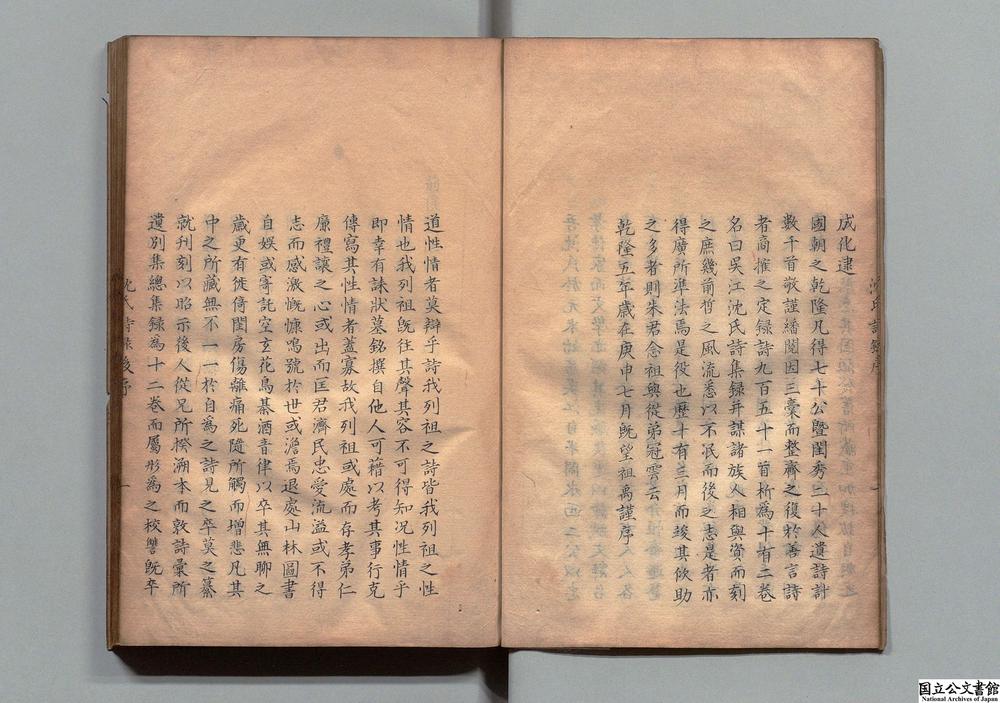 成化逮
國朝之乾隆凡得七十公暨閨秀二十人遺詩計
數千首敬謹繙閱因三彙而整齊之復於善言詩
者商搉之定錄詩九百五十一首析為十有二卷
名曰吳江沈氏詩集錄并謀諸族人相與資而刻
之庶幾前哲之風流悉以不泯而後之志是者亦
得廣所準法焉是役也歷十有三月而竣其佽助
之多者則朱君念祖與從弟冠雲云
乾隆五年歲在庚申七月既望祖禹謹序
沈氏詩錄後序
一
道性情者莫辯乎詩我列祖之詩皆我列祖之性
情也我列祖既往其聲其容不可得知况性情乎
即幸有誄狀墓銘撰自他人可藉以考其事行克
傳寫其性情者蓋寡故我列祖或處而存孝弟仁
廉禮讓之心或出而匡君濟民忠愛流溢或不得
志而感激慨慷鳴號於世或澹焉退處山林圖書
自娛或寄託空玄花鳥棊酒音律以卒其無聊之
歲更有徙倚閨房傷離痛死隨所觸而增悲凡其
中之所藏無不一一於自為之詩見之卒莫之纂
就刊刻以昭示後人從兄所揆溯本而敦詩彙所
遺別集總集錄為十二卷而屬彤為之校讐既卒
国立公文書館
National Archives of Japan